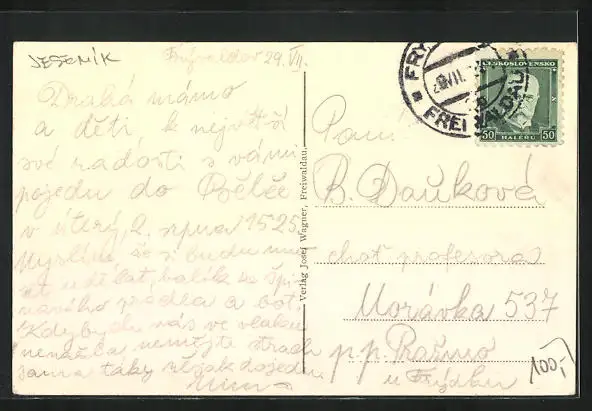 JESENÍK
Frývaldov 29. VII.
Drahá mámo
a děti, k největší
své radosti s vámi
pojedu do Bělče
v úterý, 2. srpna 1525.
Myslím, že si budu
udělat, balík se špi
navého prádla a bot.
Kdyby vás ve vlaku
nemějte strach
sama taky však dojedu
Verlag Josef Wagner, Freiwaldau.
ČESKOSLOVENSKO
50 HALÉŘŮ 50
FRÝ
FREIWALDAU
Paní
B. Daňková
choť profesora
Morávka 537
p. p. Pražmo
u Frýdku
100,-